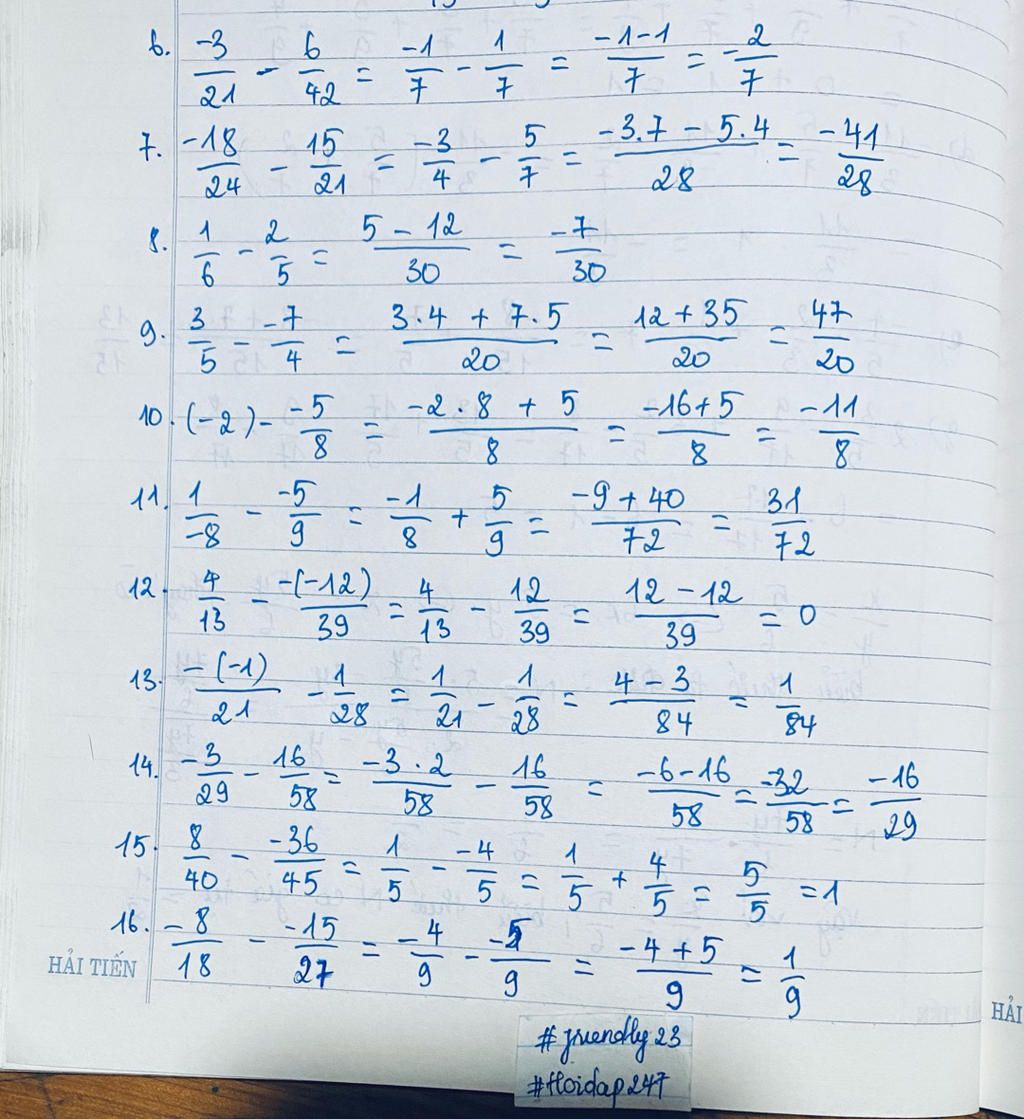 6. -3/21 - 6/42 = -1/7 - 1/7 = -1-1/7 = -2/7
7. -18/24 - 15/21 = -3/4 - 5/7 = -3.7 - 5.4/28 = -41/28
8. 1/6 - 2/5 = 5 - 12/30 = -7/30
9. 3/5 - -7/4 = 3.4 + 7.5/20 = 12 + 35/20 = 47/20
10. (-2) - -5/8 = -2.8 + 5/8 = -16+5/8 = -11/8
11. 1/-8 - -5/9 = -1/8 + 5/9 = -9 + 40/72 = 31/72
12. 4/13 - -(-12)/39 = 4/13 - 12/39 = 12 - 12/39 = 0
13. -(-1)/21 - 1/28 = 1/21 - 1/28 = 4 - 3/84 = 1/84
14. -3/29 - 16/58 = -3.2/58 - 16/58 = -6-16/58 = -32/58 = -16/29
15. 8/40 - -36/45 = 1/5 - -4/5 = 1/5 + 4/5 = 5/5 = 1
16. -8/18 - -15/27 = -4/9 - -5/9 = -4+5/9 = 1/9
HẢI TIẾN
HẢI
#friendly23
#Hoidap247